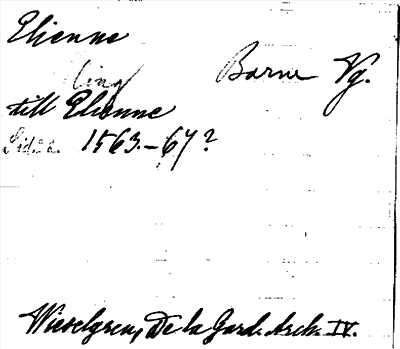 Elienne
ling Barne Vg.
till Elienne
1563.-67?
Wieselgren, De la Gard. Arch. IV.